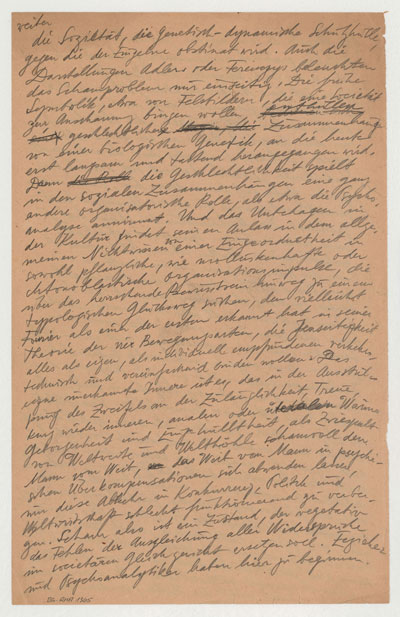 weiter
die Sozietät, die Genetisch-dynamische Schutzhülle,
gegen die der Einzelne obstinat wird. Auch die
Darstellungen Adlers oder Ferenczys beleuchten
das Schamproblem nur einseitig. Die frühe
Symbolik, etwa von Felsbildern, die eine Societät
zur Anschauung bringen wollen
geschlechtlichen Zusammenhang
von einer biologischen Genetik, an die heute
erst langsam und tastend herangegangen wird.
Denn die Geschlechtlichkeit spielt
in den sozialen Zusammenhängen eine ganz
andere organisatorische Rolle, als etwa die Psycho-
analyse annimmt. Und das Unbehagen in
der Kultur findet seinen Anlass in dem allge-
meinen Nichtwissen einer Zugeordnetheit in
sowohl pflanzliche, wie molluskenhafte oder
chronologistische Organisationsimpulse, die
über das herrschende hinweg zu einem
typologischen Glücksweg suchen, den vielleicht
Fourier als einer der ersten erkannt hat in seiner
Theorie der vier Bewegungsarten, die Jenseitigkeit
alles als eigen, als individuell empfundenen
technisch und vereinfachend binden wollen. Das
eigene Innere ist es, das in der
des Zweifels an der Zulänglichkeit, Treue
wieder inneren, analen oder Wärme
Geborgenheit und Eingehülltheit, als Zwiespalt
von Weltweite und Welthöhle schamvoll den
Mann vom Weib, das Weib vom Mann in psychi-
schen Überkompensationen sich abwenden lassen
um diese Abkehr in Konkurrenz, Politik und
Weltwirtschaft schlecht funktionierend zu verber-
gen. Scham also ist ein Zustand, der vegetativ
das Fehlen der Ausgleichung aller Widersprüche
im societären Gleichgewicht ersetzen soll. Erzieher
und Psychoanalytiker haben hier zu beginnen.